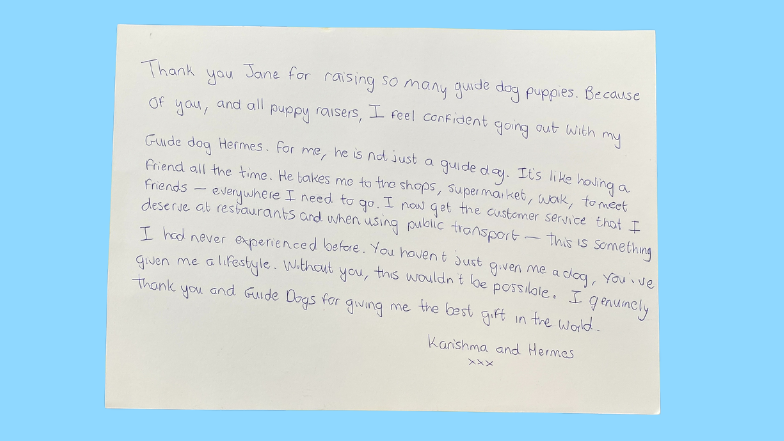 Thank you Jane for raising so many guide dog puppies. Because
of you, and all puppy raisers, I feel confident going out with my
Guide dog Hermes. For me, he is not just a guide dog. It's like having a
friend all the time. He takes me to the shops, supermarket, walk, to meet
friends – everywhere I need to go. I now get the customer service that I
deserve at restaurants and when using public transport – this is something
I had never experienced before. You haven't just given me a dog, you've
given me a lifestyle. Without you, this wouldn't be possible. I genuinely
Thank you and Guide Dogs for giving me the best gift in the world.
Karishma and Hermes
xxx